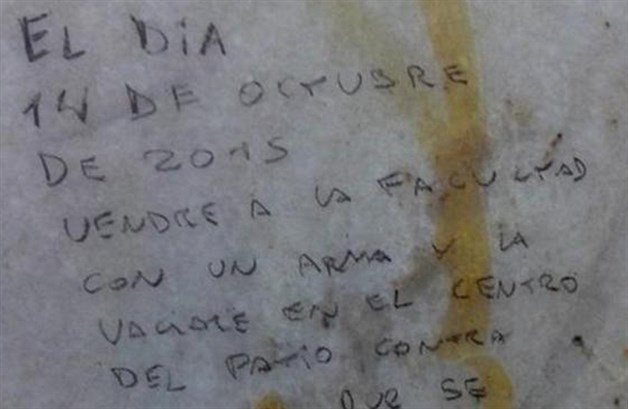 EL DIA
14 DE OCTUBRE
DE 2015
VENDRE A LA FACULTAD
CON UN ARMA Y LA
VACIARE EN EL CENTRO
DEL PATIO CONTRA
QUE SE